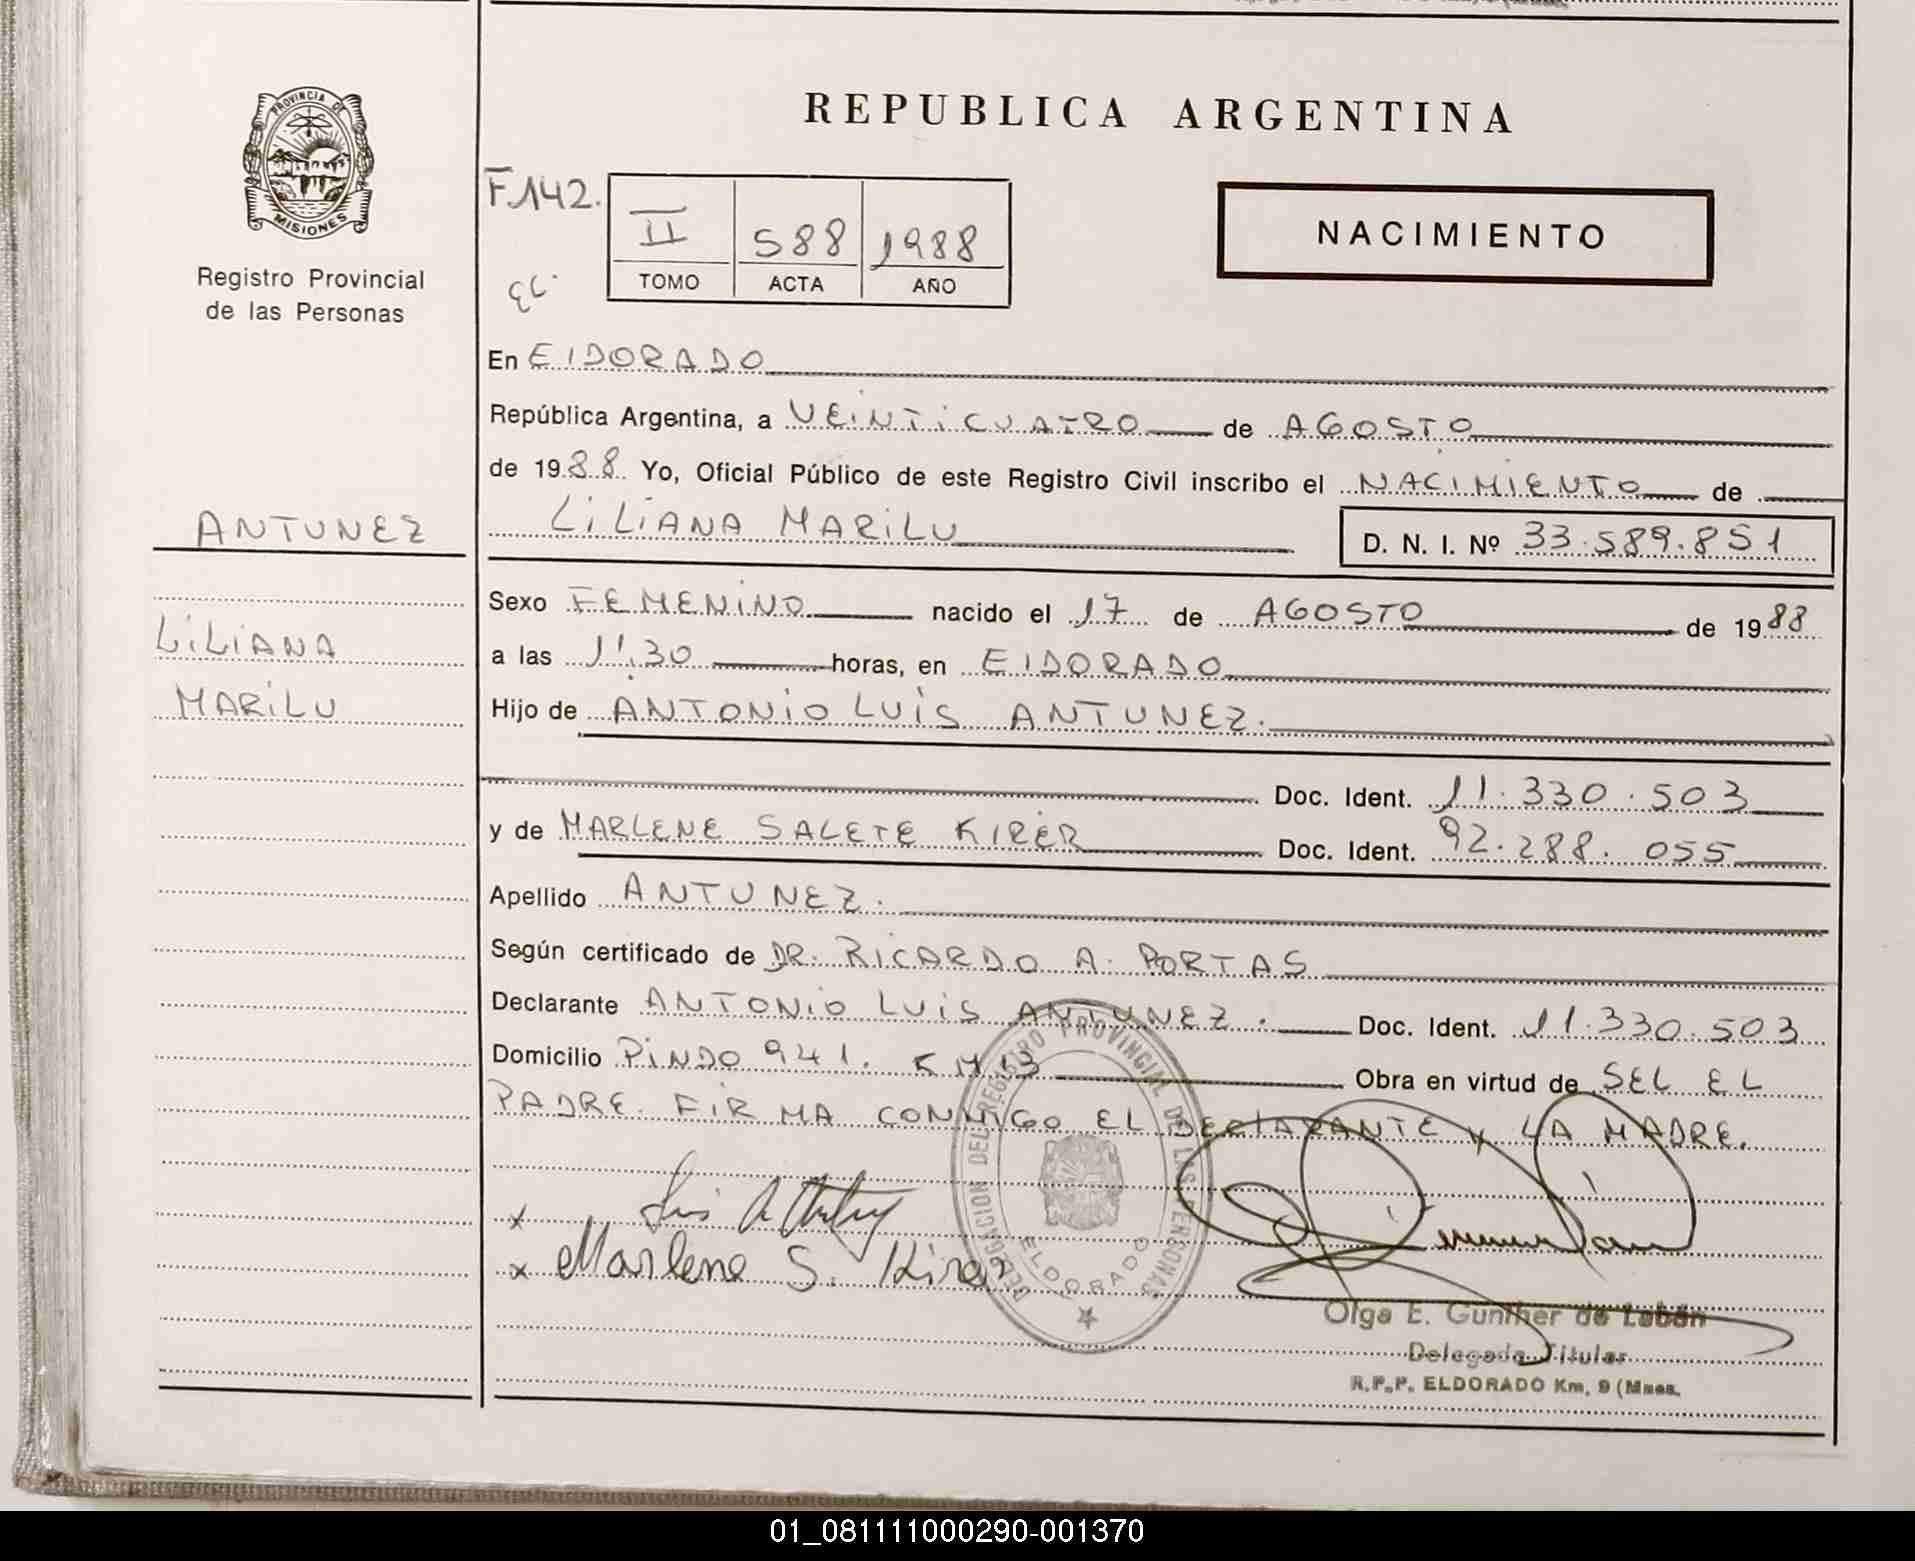 REPUBLICA ARGENTINA
PROVINCIA DE
MISIONES
Registro Provincial
de las Personas
F.142.
II 588 1988
TOMO ACTA AÑO
NACIMIENTO
En ElDORADO
República Argentina, a VEINTICUATRO de AGOSTO
de 1988 Yo, Oficial Público de este Registro Civil inscribo el NACIMIENTO de
ANTUNEZ
LILIANA MARILU D. N. I. Nº 33.589.851
Sexo FEMENINO nacido el 17 de AGOSTO de 1988
LILIANA
a las 11.30 horas, en ElDORADO
MARILU
Hijo de ANTONIO LUIS ANTUNEZ.
Doc. Ident. 11.330.503
y de MARLENE SALETE KIRER Doc. Ident. 92.288.055
Apellido ANTUNEZ.
Según certificado de DR. RICARDO A. PORTAS
Declarante ANTONIO LUIS ANTUNEZ. Doc. Ident. 11.330.503
Domicilio PINDO 941. KM 13 Obra en virtud de SEL EL
PADRE. FIRMA CONMIGO EL DEClARANTE y LA MADRE.
x Luis A Antunez
x Marlene S. Kirer
DELEGACION DEL REGISTRO PROVINCIAL DE LAS PERSONAS
ELDORADO
Olga E. Gunther de Labán
Delegada Titular
R.P.P. ELDORADO Km. 9 (Mnes.
01_081111000290-001370